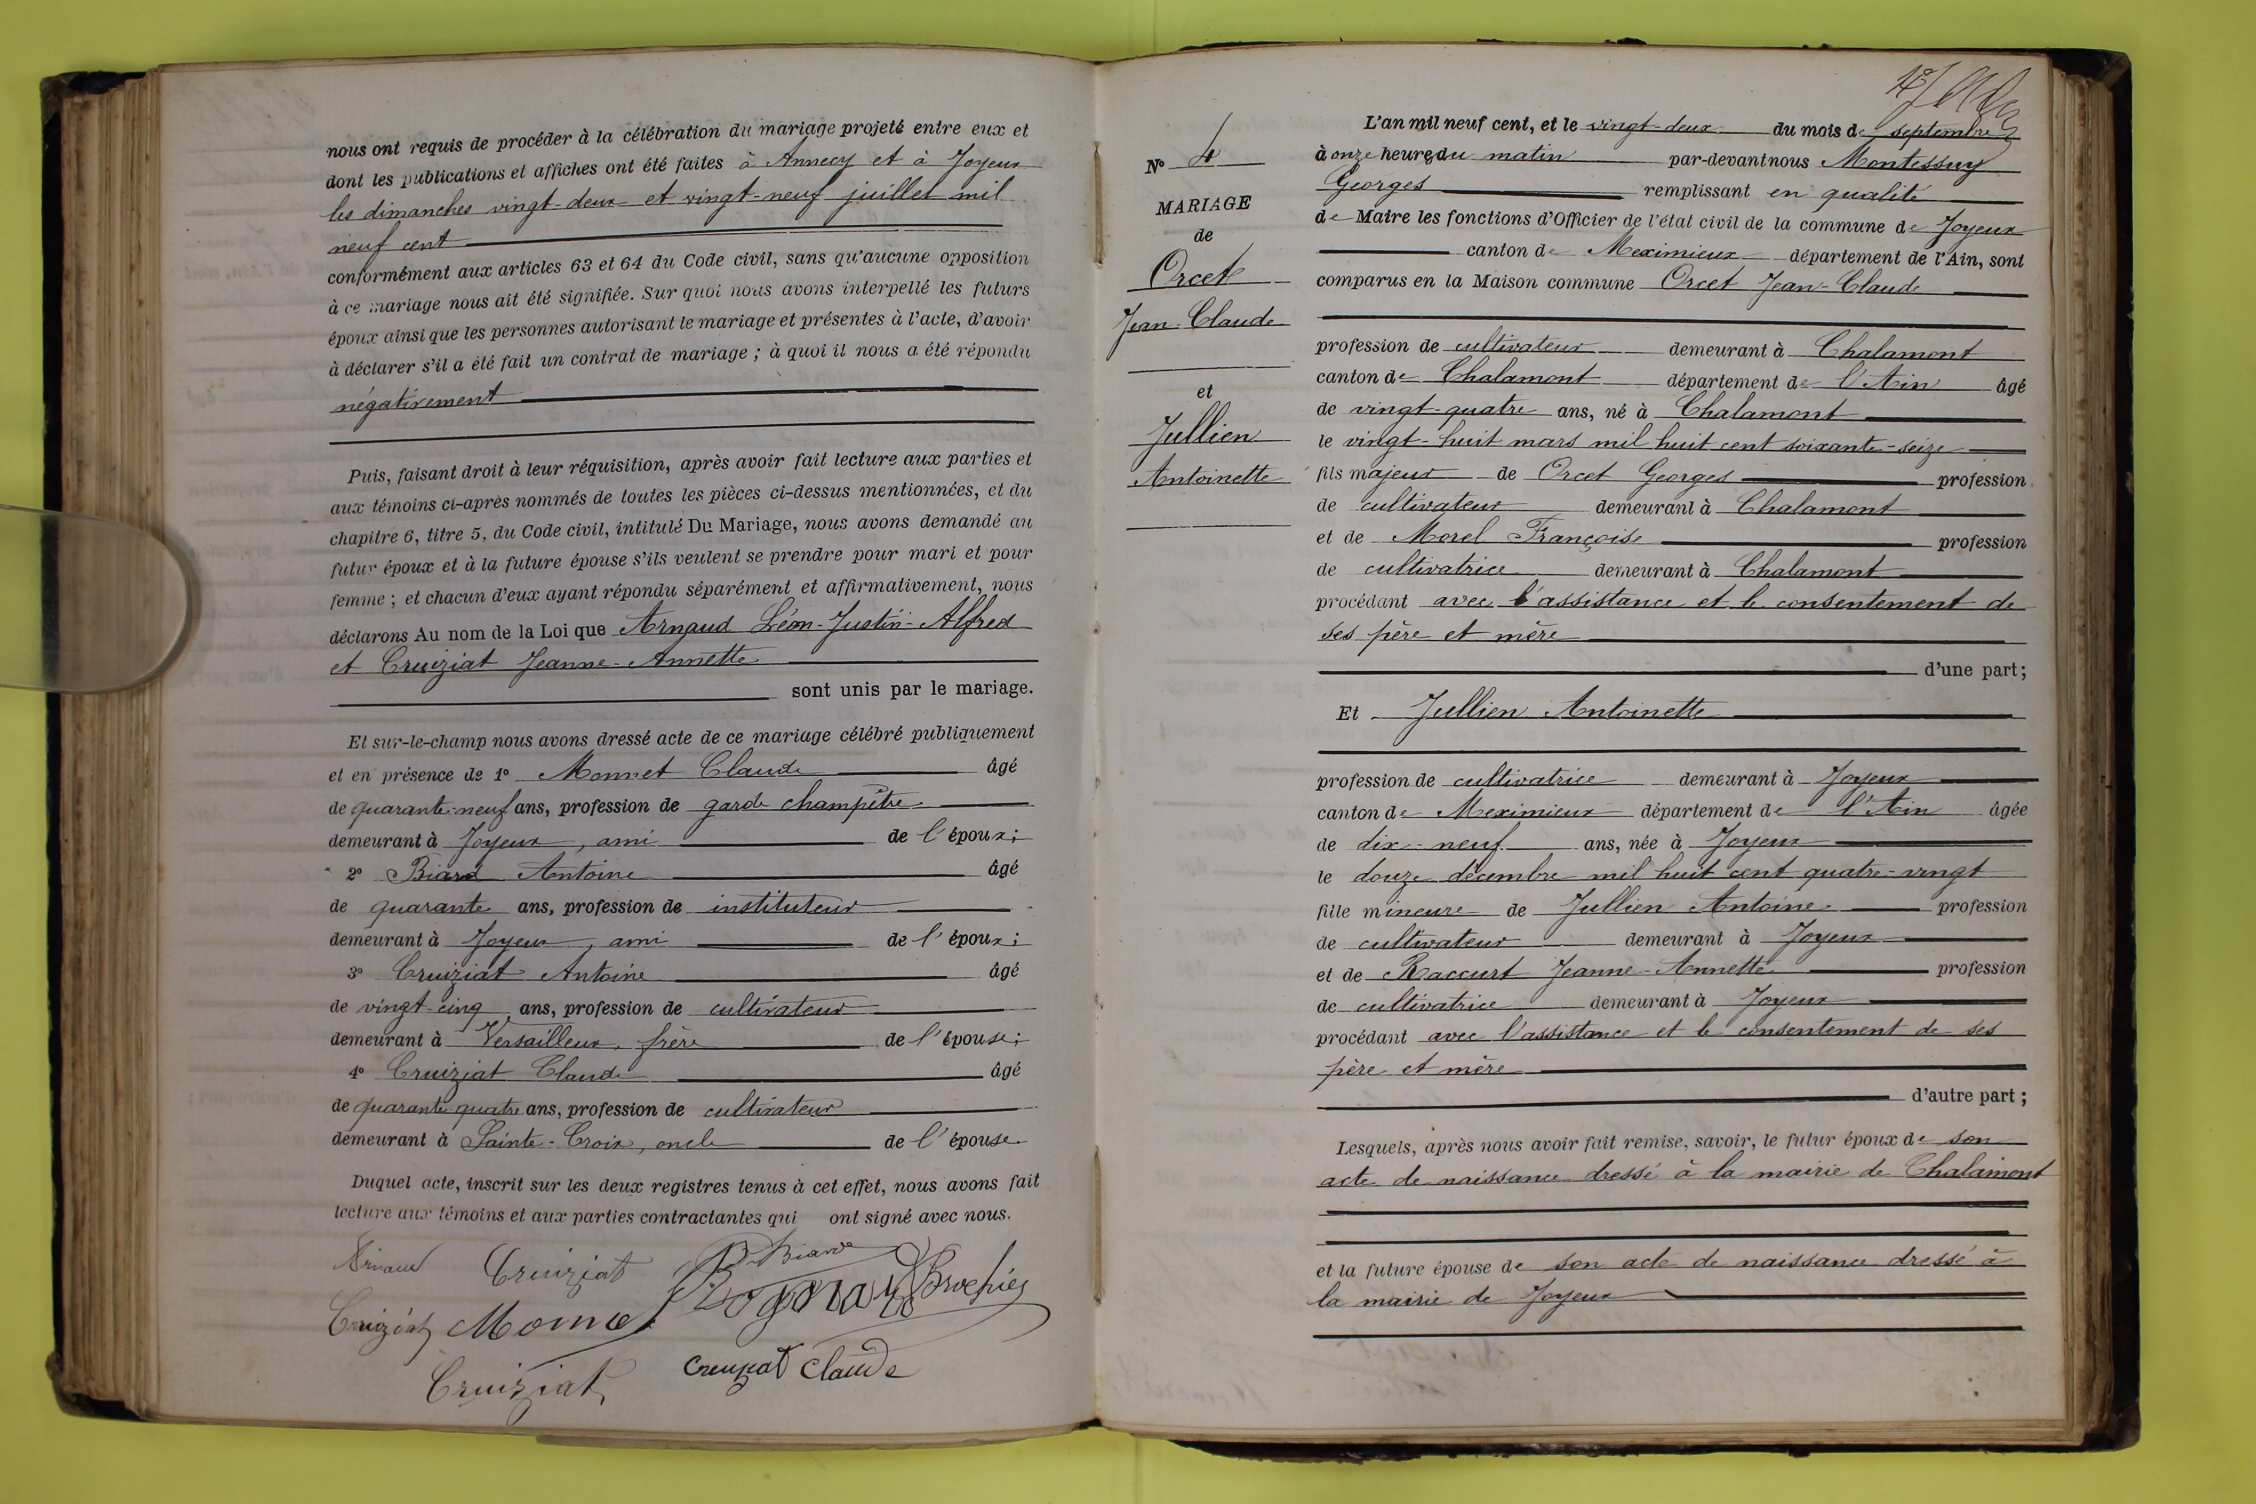 nous ont requis de procéder à la célébration du mariage projeté entre eux et
dont les publications et affiches ont été faites à Annecy et à Joyeux
les dimanches vingt-deux et vingt-neuf juillet mil
neuf cent
conformément aux articles 63 et 64 du Code civil, sans qu'aucune opposition
à ce mariage nous ait été signifiée. Sur quoi nous avons interpellé les futurs
époux ainsi que les personnes autorisant le mariage et présentes à l'acte, d'avoir
à déclarer s'il a été fait un contrat de mariage ; à quoi il nous a été répondu
négativement
Puis, faisant droit à leur réquisition, après avoir fait lecture aux parties et
aux témoins ci-après nommés de toutes les pièces ci-dessus mentionnées, et du
chapitre 6, titre 5, du Code civil, intitulé Du Mariage, nous avons demandé au
futur époux et à la future épouse s'ils veulent se prendre pour mari et pour
femme ; et chacun d'eux ayant répondu séparément et affirmativement, nous
déclarons Au nom de la Loi que Arnaud Léon-Justin-Alfred
et Cruiziat Jeanne-Annette
sont unis par le mariage.
Et sur-le-champ nous avons dressé acte de ce mariage célébré publiquement
et en présence de 1° Monnet Claude âgé
de quarante-neuf ans, profession de garde champêtre
demeurant à Joyeux, ami de l'époux ;
2° Biard Antoine âgé
de quarante ans, profession de instituteur
demeurant à Joyeux, ami de l'époux ;
3° Cruiziat Antoine âgé
de vingt-cinq ans, profession de cultivateur
demeurant à Versailleux, frère de l'épouse ;
4° Cruiziat Claude âgé
de quarante-quatre ans, profession de cultivateur
demeurant à Sainte-Croix, oncle de l'épouse
Duquel acte, inscrit sur les deux registres tenus à cet effet, nous avons fait
lecture aux témoins et aux parties contractantes qui ont signé avec nous.
Arnaud Cruiziat Biard
Cruiziat Monnet
Cruiziat Cruiziat Claude
N° 4
MARIAGE
de
Orcet
Jean-Claude
et
Jullien
Antoinette
L'an mil neuf cent, et le vingt-deux du mois de septembre
à onze heures du matin par-devant nous Montessuy
Georges remplissant en qualité
de Maire les fonctions d'Officier de l'état civil de la commune de Joyeux
canton de Meximieux département de l'Ain, sont
comparus en la Maison commune Orcet Jean-Claude
profession de cultivateur demeurant à Chalamont
canton de Chalamont département de l'Ain âgé
de vingt-quatre ans, né à Chalamont
le vingt-huit mars mil huit cent soixante-seize
fils majeur de Orcet Georges profession
de cultivateur demeurant à Chalamont
et de Morel Françoise profession
de cultivatrice demeurant à Chalamont
procédant avec l'assistance et le consentement de
ses père et mère
d'une part ;
Et Jullien Antoinette
profession de cultivatrice demeurant à Joyeux
canton de Meximieux département de l'Ain âgée
de dix-neuf ans, née à Joyeux
le douze décembre mil huit cent quatre-vingt
fille mineure de Jullien Antoine profession
de cultivateur demeurant à Joyeux
et de Raccurt Jeanne-Annette profession
de cultivatrice demeurant à Joyeux
procédant avec l'assistance et le consentement de ses
père et mère
d'autre part ;
Lesquels, après nous avoir fait remise, savoir, le futur époux de son
acte de naissance dressé à la mairie de Chalamont
et la future épouse de son acte de naissance dressé à
la mairie de Joyeux